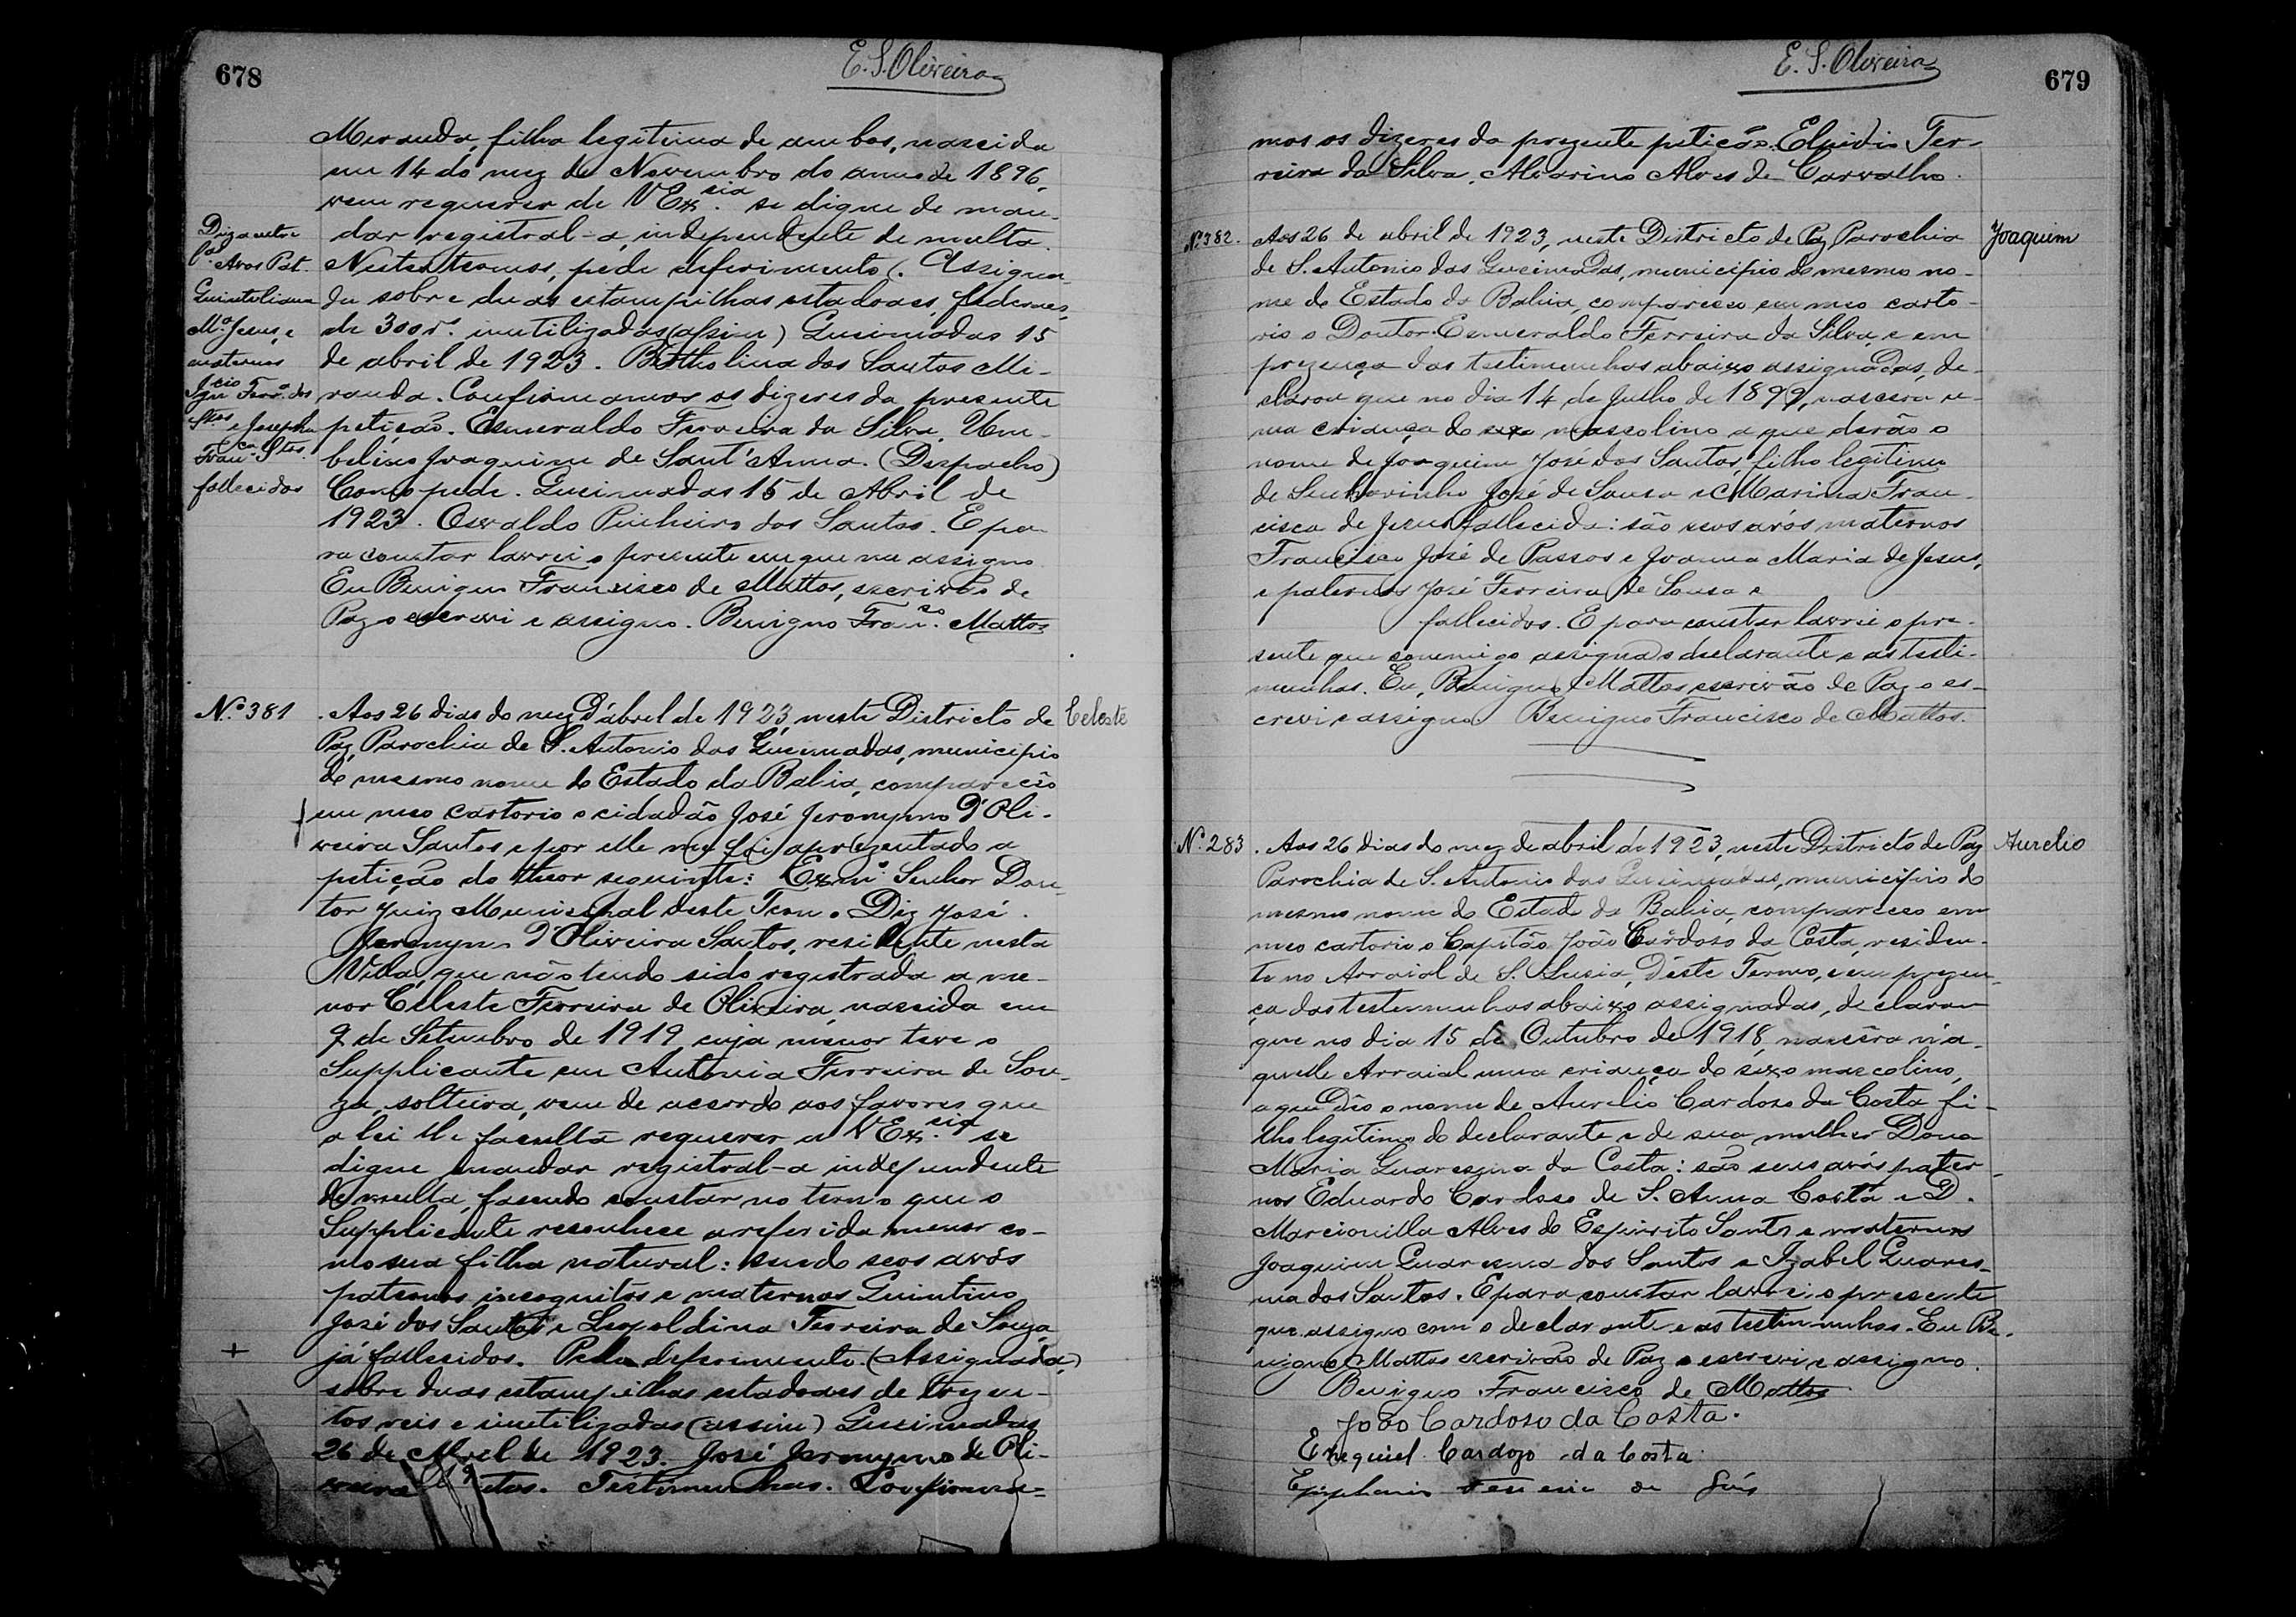 678
E. S. Oliveira
Miranda, filha legitima de ambos, nascida
em 14 do mez de Novembro do anno de 1896,
vem requerer de V Ex.cia se digne de man-
dar registral-a, independente de multa.
Nestes termos, pede deferimento. (Assigna-
da sobre duas estampilhas estadoaes, federaes,
de 300 rs. inutilizadas (assim) Queimadas 15
de abril de 1923. dos Santos Mi-
randa. Confirmamos os dizeres da presente
petição. Esmeraldo Ferreira da Silva, Um-
belino Joaquim de Sant'Anna. (Despacho)
Como pede. Queimadas 15 de Abril de
1923. Oswaldo Pinheiro dos Santos. E pa-
ra constar lavrei o presente em que me assigno
Eu Benigno Francisco de Mattos, escrivão de
Paz o escrevi e assigno. Benigno Franco. Mattos
Diz entre
Avos Pat.
Quintiliano
Ma. Jesus, e
maternos
Igncio Ferra. dos
Stos e Josepha
Franca. Stos.
fallecidos
N.º 381
Celeste
Aos 26 dias do mez d'abril de 1923, neste Districto de
Paz, Parochia de S. Antonio das Queimadas, municipio
do mesmo nome do Estado da Bahia, compareceo
em meo cartorio o cidadão José Jeronymo d'Oli-
veira Santos e por elle me foi aprezentado a
petição do theor seguinte: Exmo. Senhor Dou-
tor Juiz Municipal deste Termo. Diz José
Jeronymo d'Oliveira Santos, residente nesta
Villa, que não tendo sido registrada a me-
nor Celeste Ferreira de Oliveira, nascida em
9 de Setembro de 1919, cuja menor teve o
Supplicante em Antonia Ferreira de Sou-
za, solteira, vem de acordo aos favores que
a lei lhe faculta requerer a V Ex.cia se
digne mandar registral-a independente
de multa, fasendo constar no termo que o
Supplicante reconhece a referida menor co-
mo sua filha natural: sendo seos avós
paternos incognitos e maternos Quintino
José dos Santos e Leopoldina Ferreira de Souza,
já fallecidos. Pede deferimento. (Assignada)
sobre duas estampilhas estadoaes de trezen-
tos reis e inutilizadas (assim) Queimadas
26 de Abril de 1923. José Jeronymo de Oli-
veira Santos. Testimunhas. Confirma-
679
E. S. Oliveira
mos os dizeres da prezente petição. Elpidio Fer-
reira da Silva, Alvarino Alves de Carvalho.
N.º 382.
Joaquim
Aos 26 de abril de 1923, neste Districto de Paz Parochia
de S. Antonio das Queimadas, municipio do mesmo no-
me do Estado da Bahia, compareceo em meo carto-
rio o Doutor Esmeraldo Ferreira da Silva, e em
prezença das testimunhas abaixo assignadas, de-
clarou que no dia 14 de Julho de 1899, nascera u-
ma criança do sexo mascolino a que derão o
nome de Joaquim José dos Santos, filho legitimo
de Senhorinho José de Sousa e Marinha Fran-
cisca de Jesus, fallecida: são seus avós maternos
Francisco José de Passos e Joanna Maria de Jesus,
e paternos José Ferreira de Sousa e
fallecidos. E para constar lavrei o pre-
sente que commigo assigna o declarante e as testi-
munhas. Eu, Benigno Mattos escrivão de Paz o es-
crevi e assigno. Benigno Francisco de Mattos.
N.º 283
Aurelio
Aos 26 dias do mez de abril de 1923, neste Districto de Paz
Parochia de S. Antonio das Queimadas, municipio do
mesmo nome do Estado da Bahia, compareceo em
meo cartorio o Capitão João Cardoso da Costa, residen-
te no Arraial de S. Lusia, deste Termo, e em prezen-
ça das testemunhas abaixo assignadas, declarou
que no dia 15 de Outubro de 1918, nascêra n'a-
quelle Arraial uma criança do sexo mascolino,
a que dão o nome de Aurelio Cardoso da Costa, fi-
lho legitimo do declarante e de sua mulher Dona
Maria Quaresma da Costa: são seus avós pater-
nos Eduardo Cardoso de S. Anna Costa e D.
Marcionilla Alves do Espirito Santo e maternos
Joaquim Quaresma dos Santos e Izabel Quares-
ma dos Santos. E para constar lavrei o presente
que assigno com o declarante e as testimunhas. Eu Be-
nigno Mattos escrivão de Paz o escrevi e assigno.
Benigno Francisco de Mattos
João Cardoso da Costa.
Ezequiel Cardozo da Costa
Epiphanio de Góis